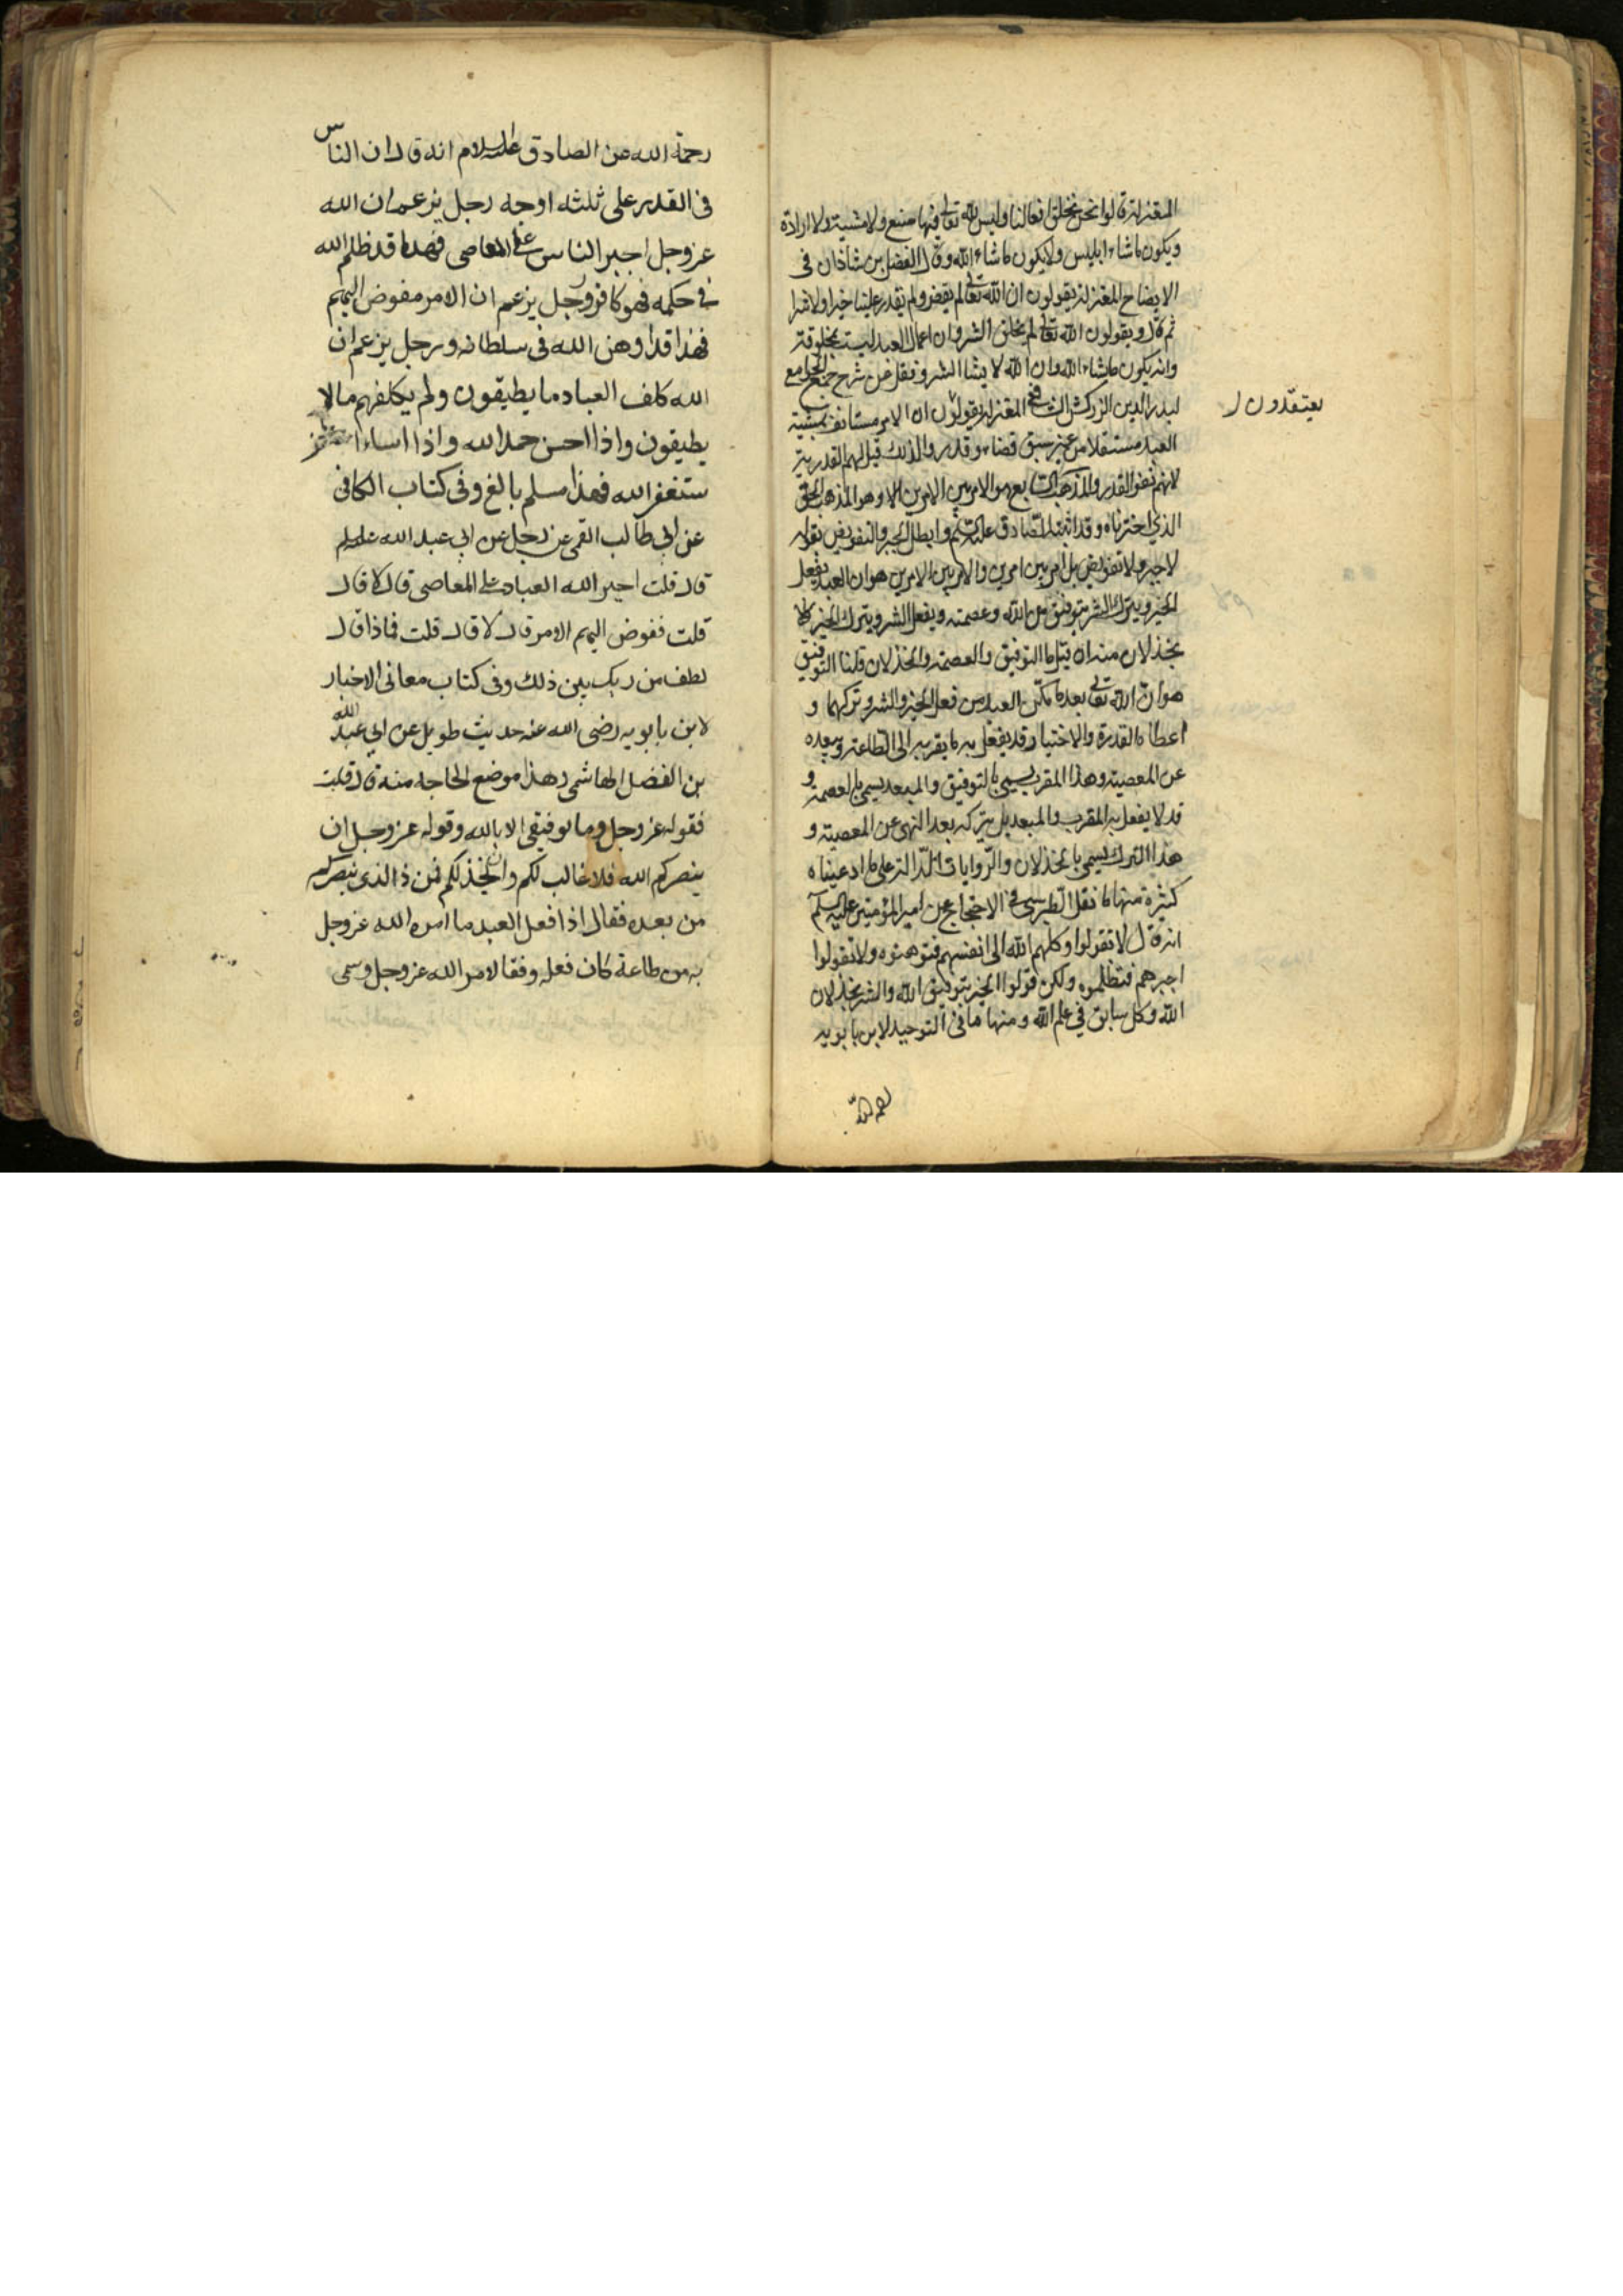 المعتزلة قالوا نحن نخلق افعالنا وليس لله تعالى فيها صنع ولا مشية ولا ارادة
ويكون ما شاء ابليس ولا يكون ما شاء الله وقال الفضل بن شاذان فى
الايضاح المعتزلة يقولون ان الله تعالى لم يقض ولم يقدر علينا خيرا ولا شرا
ثم قال ويقولون الله تعالى لم يخلق الشر وان اعمال العبد ليست بمخلوقة
وانه يكون ما شاء الله وان الله لا يشا الشر ونقل عن شرح جمع الجوامع
لبدر الدين الزركشى ان المعتزلة يقولون ان الامر مستانف بمشية
يعتقدون ل
العبد مستقلا من غير سبق قضاء وقدر ولذلك قيل لهم القدرية
لانهم نفوا القدر والمذهب الرابع هو الامر بين الامرين الا وهو المذهب الحق
الذي اخترناه وقد اثبته الصادق عليه السلم وابطل الجبر والتفويض بقوله
لا جبر ولا تفويض بل امر بين امرين والامر بين الامرين هو ان العبد يفعل
الخير ويترك الشر بتوفيق من الله وعصمته ويفعل الشر ويترك الخير
بخذلان منه ان قيل ما التوفيق والعصمة والخذلان قلنا التوفيق
هو ان الله تعالى بعد ما مكن العبد من فعل الخير والشر وتركهما و
اعطاه القدرة والاختيار قد يفعل به ما يقربه الى الطاعة ويبعده
عن المعصية وهذا المقرب يسمى بالتوفيق والمبعد يسمى بالعصمة و
قد لا يفعل به المقرب والمبعد بل يتركه بعد النهى عن المعصية و
هذا الترك يسمى بالخذلان والروايات الدالة على ما ادعيناه
كثيرة منها ما نقل الطبرسى فى الاحتجاج عن امير المؤمنين عليه السلم
انه قال لا تقولوا وكلهم الله الى انفسهم فتوهنوه ولا تقولوا
اجبرهم فتظلموه ولكن قولوا الخير بتوفيق الله والشر بخذلان
الله وكل سابق في علم الله ومنها ما فى التوحيد لابن بابويه
رحمة الله
رحمة الله عن الصادق عليه السلام انه قال ان الناس
فى القدر على ثلثه اوجه رجل يزعم ان الله
عز وجل اجبر الناس على المعاصى فهذا قد ظلم الله
فى حكمه فهو كافر ورجل يزعم ان الامر مفوض اليهم
فهذا قد اوهن الله فى سلطانه ورجل يزعم ان
الله كلف العباد ما يطيقون ولم يكلفهم ما لا
يطيقون واذا احسن حمد الله واذا اساء
ستغفر الله فهذا مسلم بالغ وفى كتاب الكافى
عن ابي طالب القمى عن رجل عن ابي عبد الله عليه السلم
قال قلت اجبر الله العباد على المعاصى قال لا قال
قلت ففوض اليهم الامر قال لا قال قلت فماذا قال
لطف من ربك بين ذلك وفى كتاب معانى الاخبار
لابن بابويه رضى الله عنه حديث طويل عن ابي عبد الله
بن الفضل الهاشمى وهذا موضع الحاجه منه قال قلت
فقوله عز وجل وما توفيقى الا بالله وقوله عز وجل ان
ينصركم الله فلا غالب لكم وان يخذلكم فمن ذا الذى ينصركم
من بعده فقال اذا فعل العبد ما امره الله عز وجل
به من طاعة كان فعله وفقا لامر الله عز وجل وسمى